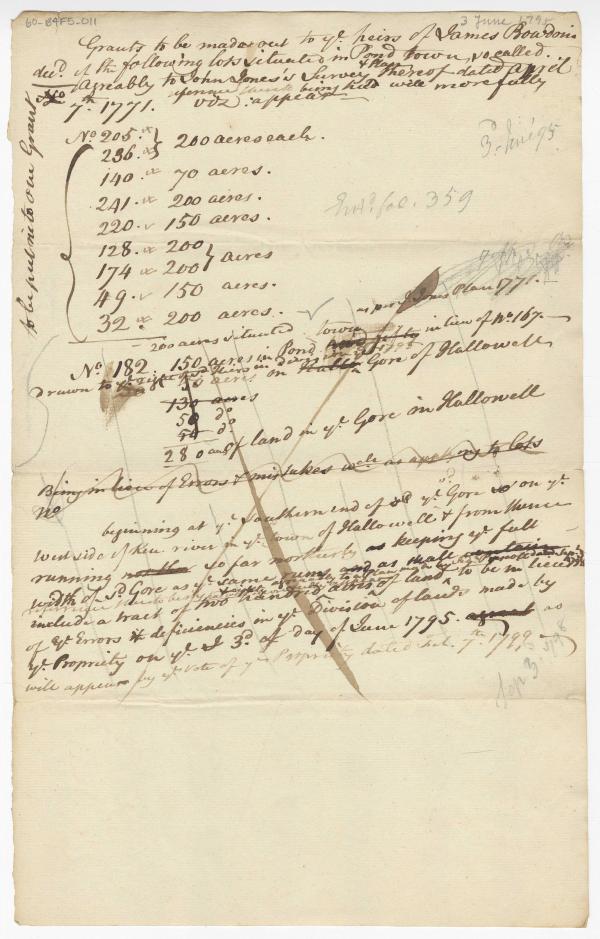 60-B4F5-011
3 June 1795
Grants to be made out to ye heirs of James Bowdoin
decd. of the following lots situated in Pond town, so called.
Agreably to John Jones's Survey & Plan thereof dated April
7th 1771. reference being had will more fully
viz appear
to be put into one Grant
No 205.
236. } 200 acres each.
140. 70 acres.
241. 200 acres.
220. 150 acres.
128. 200
174 200 } acres
49. 150 acres.
32. 200 acres.
3d June 95
359
200 acres situated town as per J. Jones Plan 1771.
No. 182. 150 acres in Pond in lieu of No 167.
Drawn to ye
acres on Gore of Hallowell
130 acres
50 do
50 do
280 acres of land in ye Gore in Hallowell
Being in lieu of Errors & mistakes as to lots
No
beginning at ye Southern end of sd ye Gore on ye
West side of Ken. river in ye town of Hallowell & from thence
running so far northerly as keeping ye full
width of sd Gore as ye same runs and as shall
reference thereto being had
include a tract of two hundred acres of land to be in lieu
of ye Errors & deficiencies in ye Division of lands made by
ye Propriety on ye 3d day of June 1795. as
will appear by ye Vote of ye Propriety dated Feb. 7th 1799
Sep 3